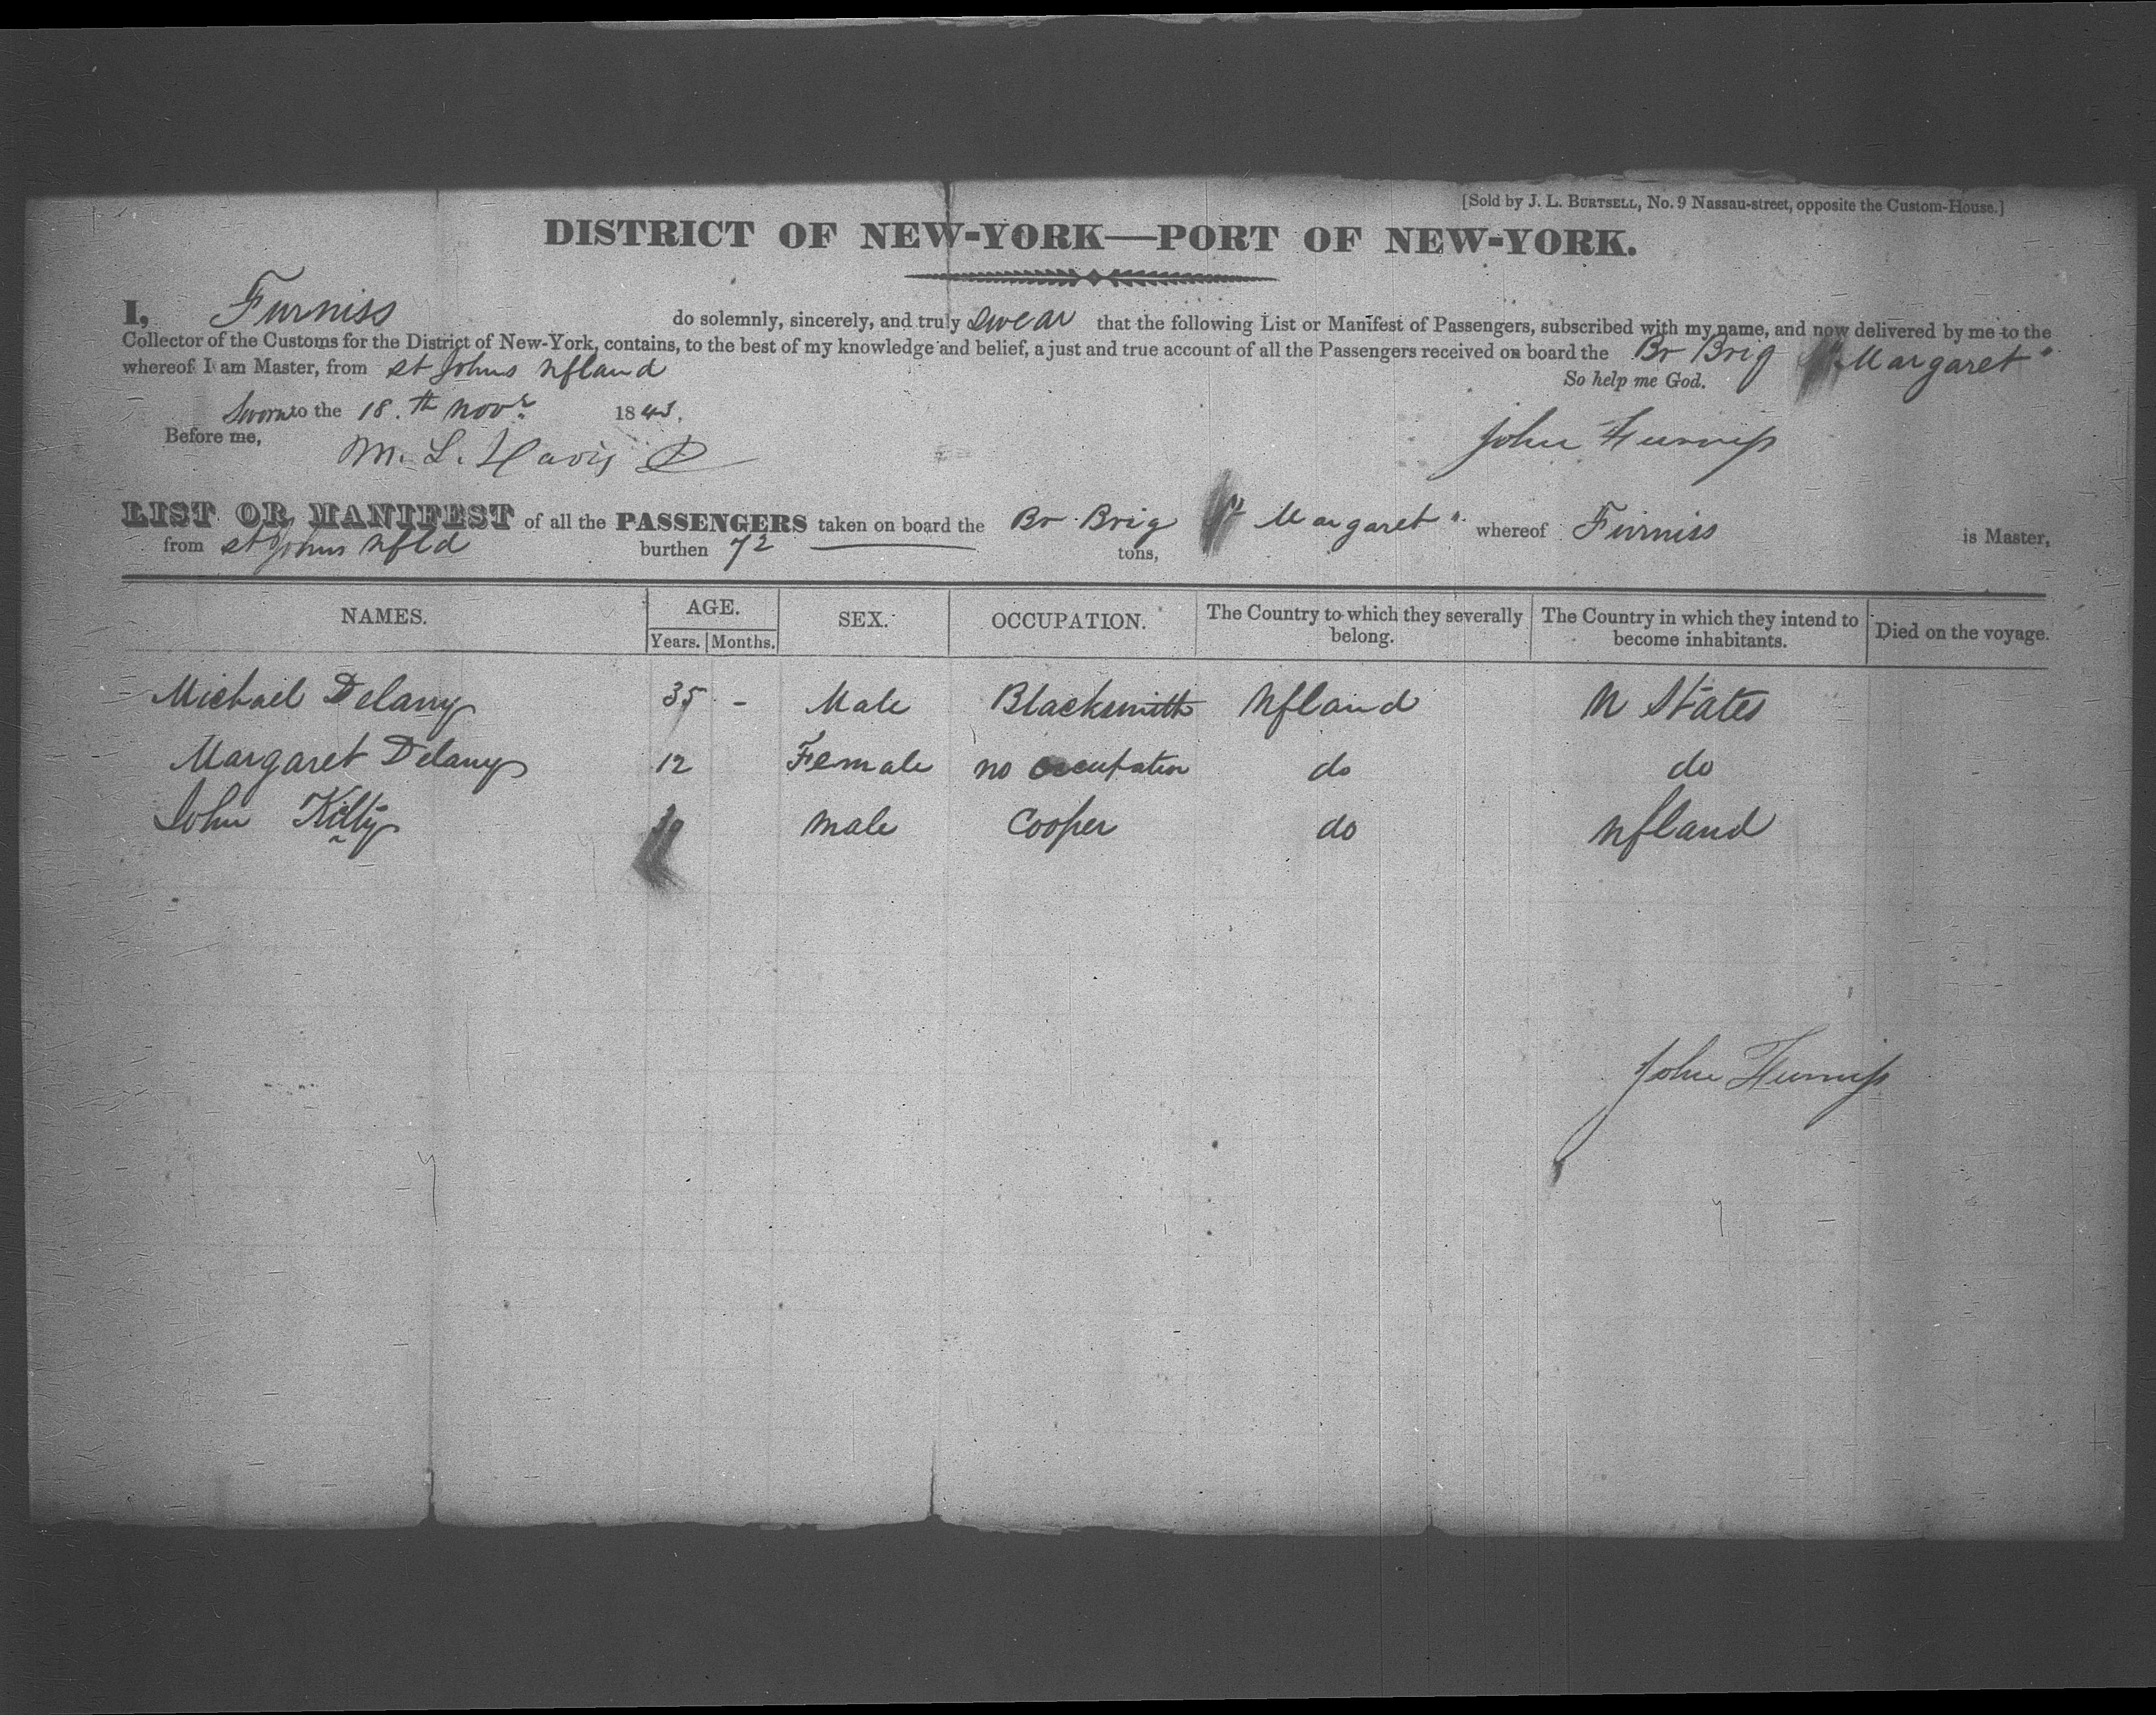 [Sold by J. L. BURTSELL, No. 9 Nassau-street, opposite the Custom-House.]
DISTRICT OF NEW-YORK—PORT OF NEW-YORK.
I, Furniss do solemnly, sincerely, and truly swear that the following List or Manifest of Passengers, subscribed with my name, and now delivered by me to the
Collector of the Customs for the District of New-York, contains, to the best of my knowledge and belief, a just and true account of all the Passengers received on board the Br Brig Margaret"
whereof I am Master, from St Johns Nfland So help me God.
Sworn to the 18.th Novr 1843.
Before me, M. L. Davis John Furniss
LIST OR MANIFEST of all the PASSENGERS taken on board the Br Brig Margaret" whereof Furniss is Master,
from St Johns Nfld burthen 72 tons,
NAMES. AGE. SEX. OCCUPATION. The Country to which they severally belong. The Country in which they intend to become inhabitants. Died on the voyage.
Years. Months.
Michael Delany 35 - Male Blacksmith Nfland U States
Margaret Delany 12 Female no occupation do do
John Kilty Male Cooper do Nfland
John Furniss